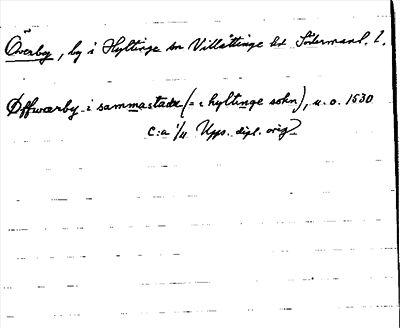 Överby, by i Hyltinge sn Villåttinge hd Södermanl. l.
Øffwærby i sammastadz (= i hyltinge sokn), u. o. 1530
c:a 1/11 Upps. dipl. orig